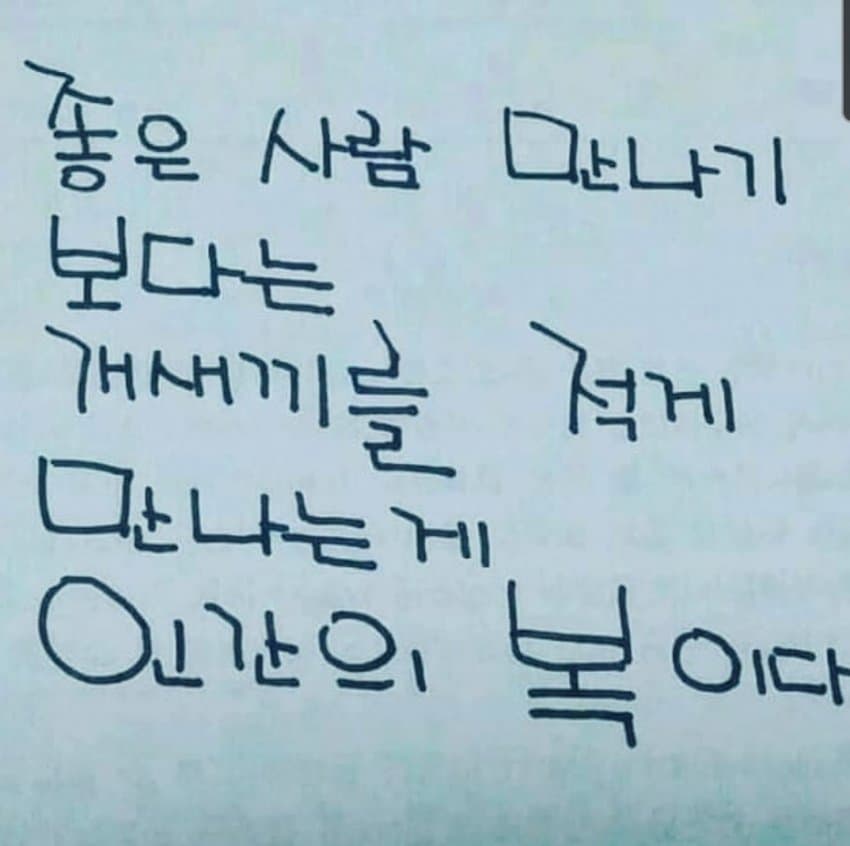 좋은 사람 만나기
보다는
개새끼를 적게
만나는게
인간의 복이다